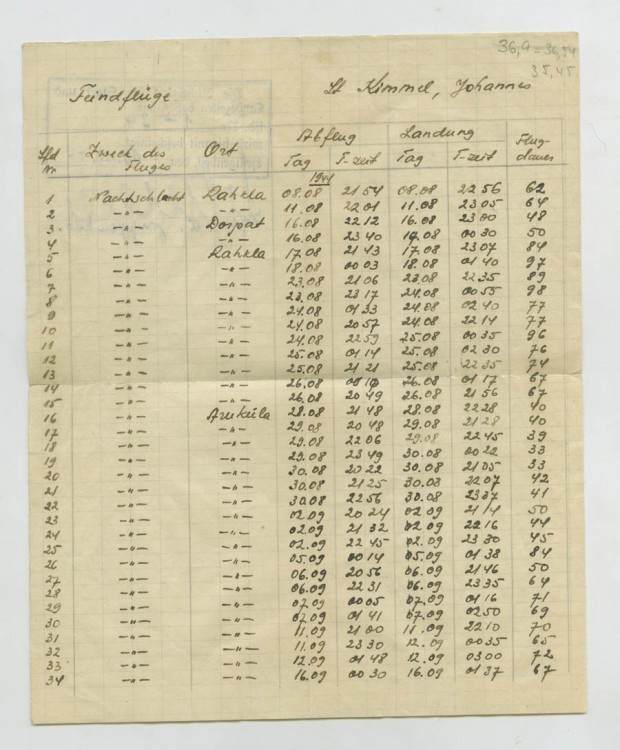 36,9 = 36,54
35,45
Feindflüge Lt Kimmel, Johannes
Lfd Nr Zweck des Fluges Ort Abflug Landung Flug-dauer
Tag T-zeit Tag T-zeit
1944
1 Nachtschlacht Rahkla 08.08 21 54 08.08 22 56 62
2 –"– –"– 11.08 22 01 11.08 23 05 64
3 –"– Dorpat 16.08 22 12 16.08 23 00 48
4 –"– –"– 16.08 23 40 17.08 00 30 50
5 –"– Rahkla 17.08 21 43 17.08 23 07 84
6 –"– –"– 18.08 00 03 18.08 01 40 97
7 –"– –"– 23.08 21 06 23.08 22 35 89
8 –"– –"– 23.08 23 17 24.08 00 55 98
9 –"– –"– 24.08 01 33 24.08 02 40 77
10 –"– –"– 24.08 20 57 24.08 22 14 77
11 –"– –"– 24.08 22 59 25.08 00 35 96
12 –"– –"– 25.08 01 14 25.08 02 30 76
13 –"– –"– 25.08 21 21 25.08 22 35 74
14 –"– –"– 26.08 00 10 26.08 01 17 67
15 –"– –"– 26.08 20 49 26.08 21 56 67
16 –"– Aruküla 28.08 21 48 28.08 22 28 40
17 –"– –"– 29.08 20 48 29.08 21 28 40
18 –"– –"– 29.08 22 06 29.08 22 45 39
19 –"– –"– 29.08 23 49 30.08 00 22 33
20 –"– –"– 30.08 20 22 30.08 21 05 33
21 –"– –"– 30.08 21 25 30.08 22 07 42
22 –"– –"– 30.08 22 56 30.08 23 37 41
23 –"– –"– 02.09 20 24 02.09 21 14 50
24 –"– –"– 02.09 21 32 02.09 22 16 44
25 –"– –"– 02.09 22 45 02.09 23 30 45
26 –"– –"– 05.09 00 14 05.09 01 38 84
27 –"– –"– 06.09 20 56 06.09 21 46 50
28 –"– –"– 06.09 22 31 06.09 23 35 64
29 –"– –"– 07.09 00 05 07.09 01 16 71
30 –"– –"– 07.09 01 41 07.09 02 50 69
31 –"– –"– 11.09 21 00 11.09 22 10 70
32 –"– –"– 11.09 23 30 12.09 00 35 65
33 –"– –"– 12.09 01 48 12.09 03 00 72
34 –"– –"– 16.09 00 30 16.09 01 37 67